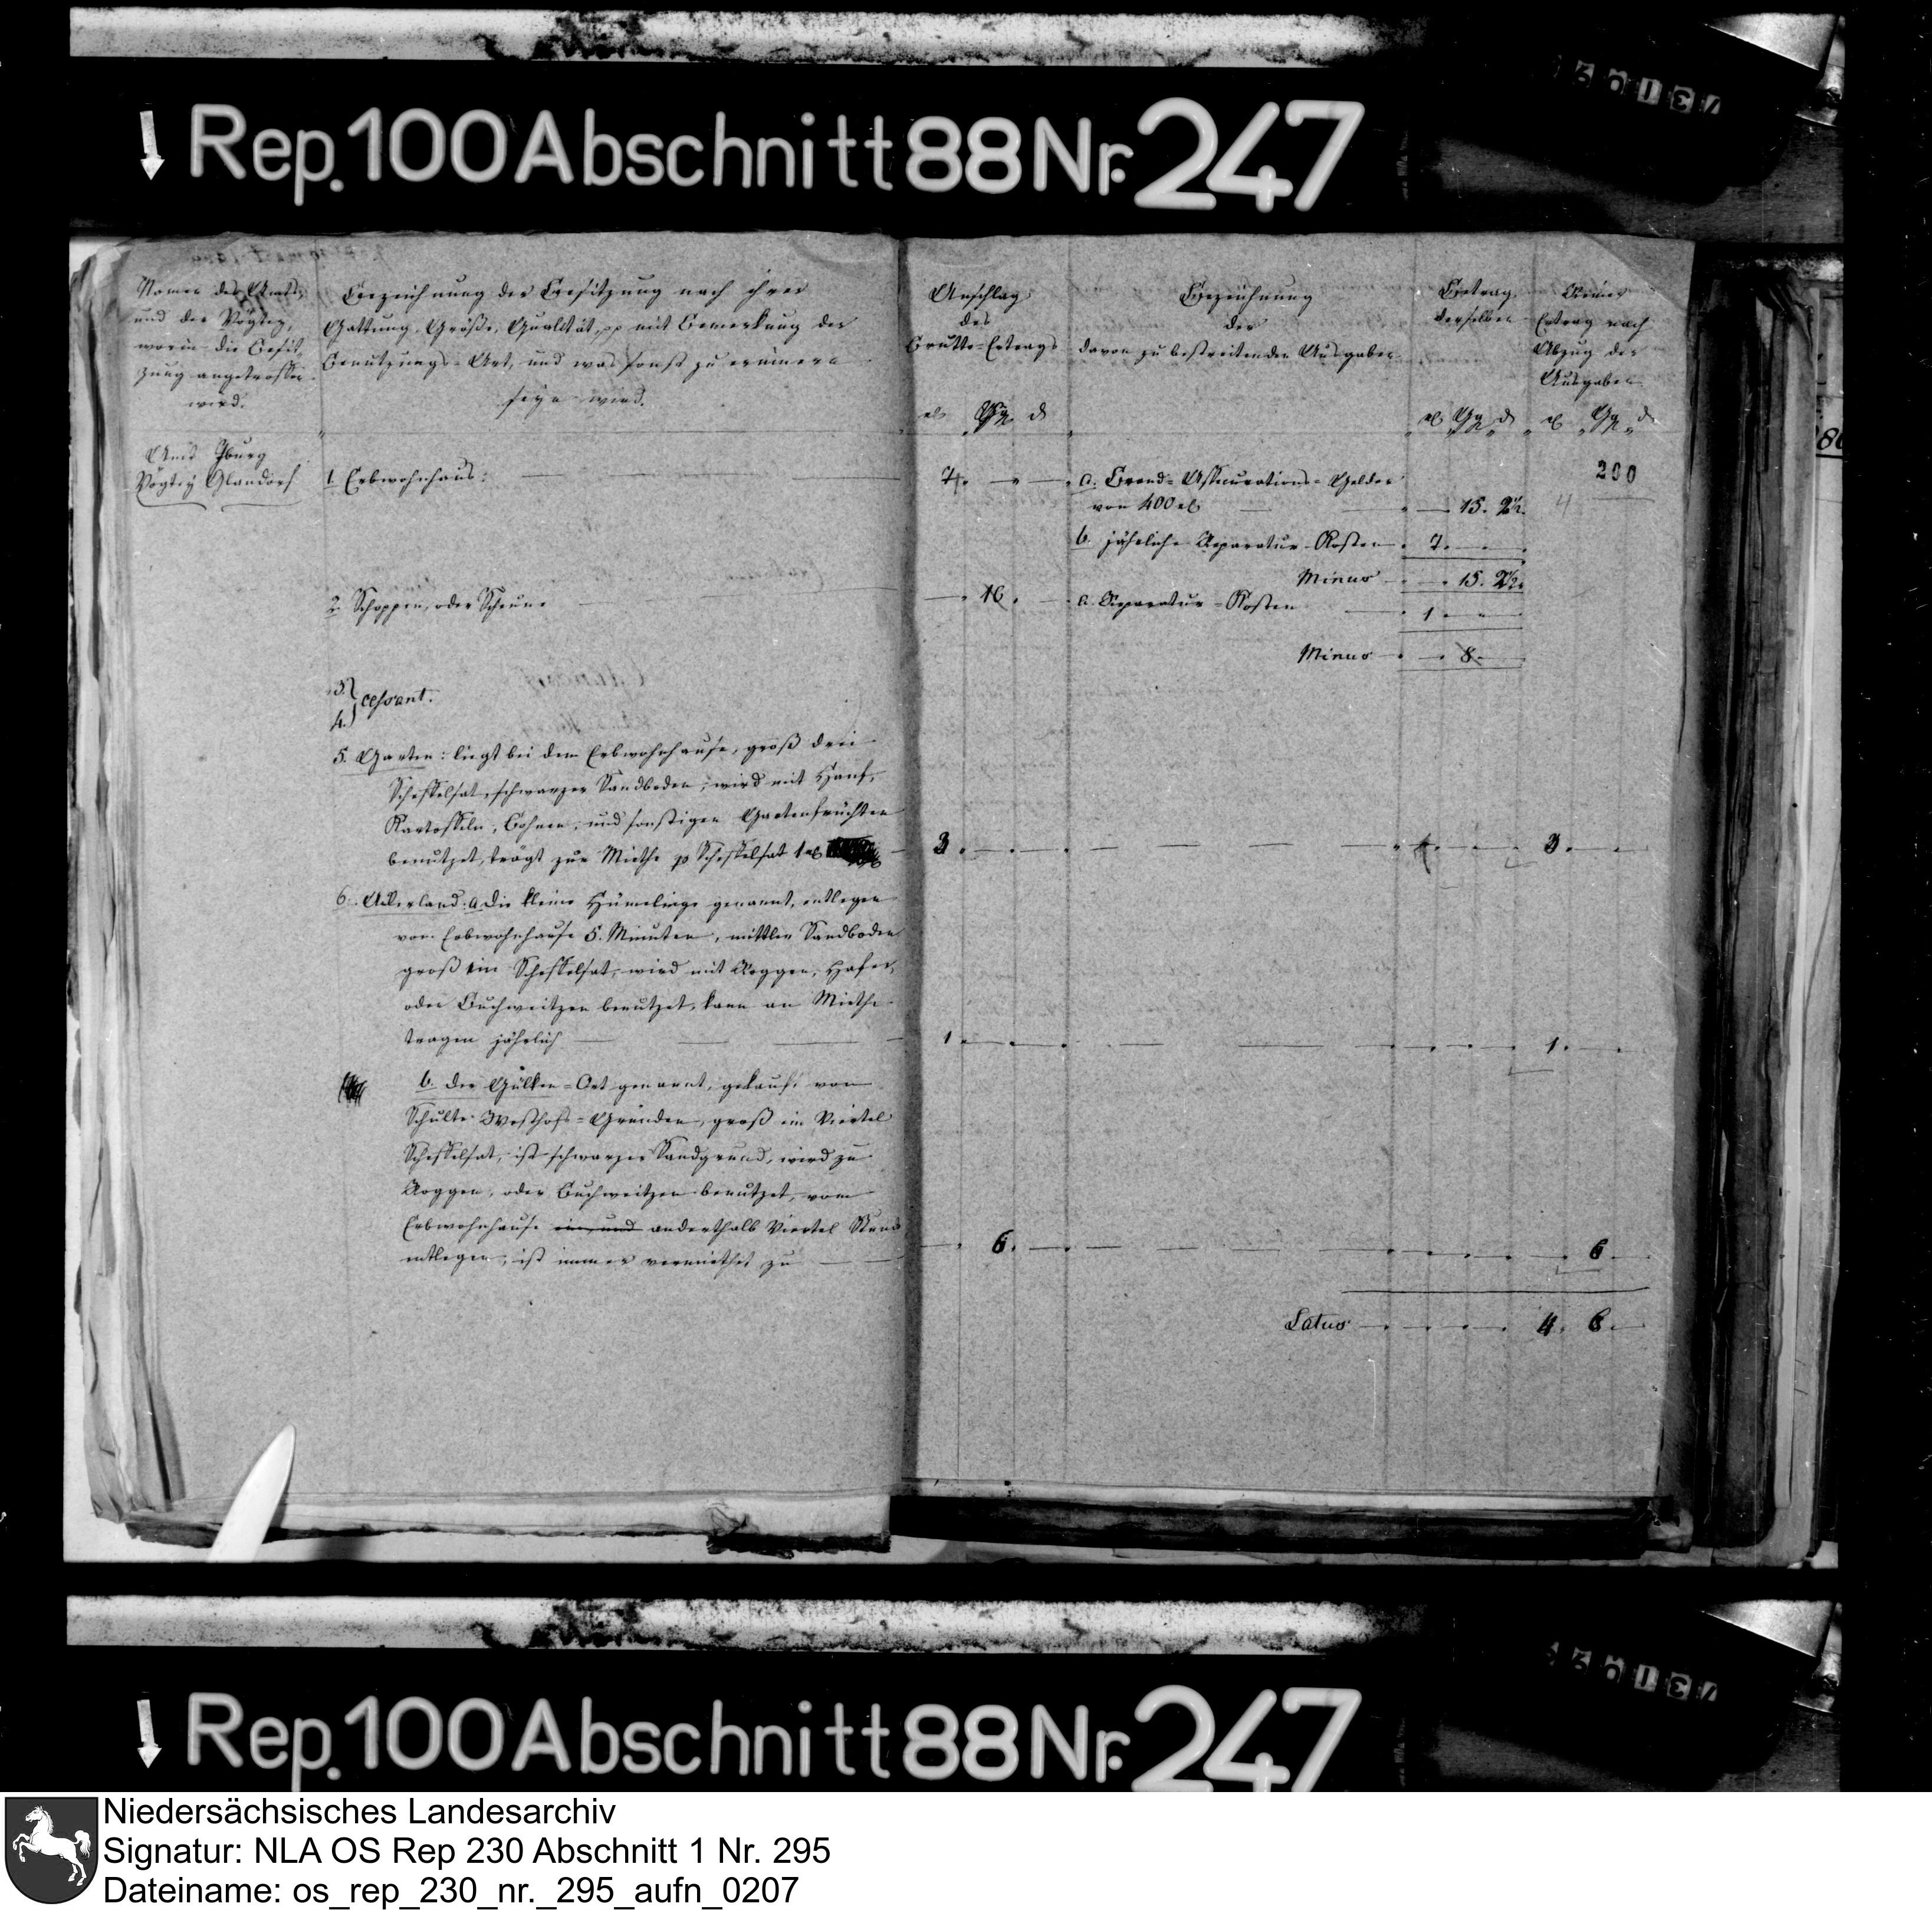 Rep.100 Abschnitt 88 Nr. 247
Namen des Amts,
und der Vögtey,
worin die Besit-
zung angetroffen
wird.
Bezeichnung der Besitzung nach ihrer
Gattung, Größe, Qualität, pp mit Bemerkung der
Benutzungs-Art, und was sonst zu erinnern
seyn wird.
Anschlag
des
Brutto-Ertrags
Bezeichnung
der
davon zu bestreitenden Ausgaben
Betrag
derselben
Reiner
Ertrag nach
Abzug der
Ausgaben
200
Amt Iburg
Vögtey Glandorf
1. Erbwohnhaus:
7.
a. Brand-Assecurations-Gelder
von 400 rl
15. 2½.
4
b. jährliche Reparatur-Kosten
7.
Minus
15. 2½.
2. Schoppen, oder Scheune
16.
a. Reparatur-Kosten
1
Minus
8.
3.)
4.) cessant.
5. Garten: liegt bei dem Erbwohnhause, groß drei
Scheffelsat, schwarzer Sandboden, wird mit Hanf,
Kartoffeln, Bohnen, und sonstigen Gartenfrüchten
benutzet, trägt zur Miethe p Scheffelsat 1 rl
3.
3.
6. Ackerland: a die kleine Hümelinge genannt, entlegen
vom Erbwohnhause 5. Minuten, mittler Sandboden
groß ein Scheffelsat, wird mit Roggen, Hafer,
oder Buchweitzen benutzet, kann an Miethe
tragen jährlich
1.
1.
b. der Gülken-Ort genannt, gekauft von
Schulte Westhofs-Gründen, groß ein Viertel
Scheffelsat, ist schwarzer Sandgrund, wird zu
Roggen, oder Buchweitzen benutzet, vom
Erbwohnhause ein, und anderthalb Viertel Stund
entlegen, ist immer vermiethet zu
6.
6
Latus
4. 6.
Rep.100 Abschnitt 88 Nr. 247
Niedersächsisches Landesarchiv
Signatur: NLA OS Rep 230 Abschnitt 1 Nr. 295
Dateiname: os_rep_230_nr._295_aufn_0207